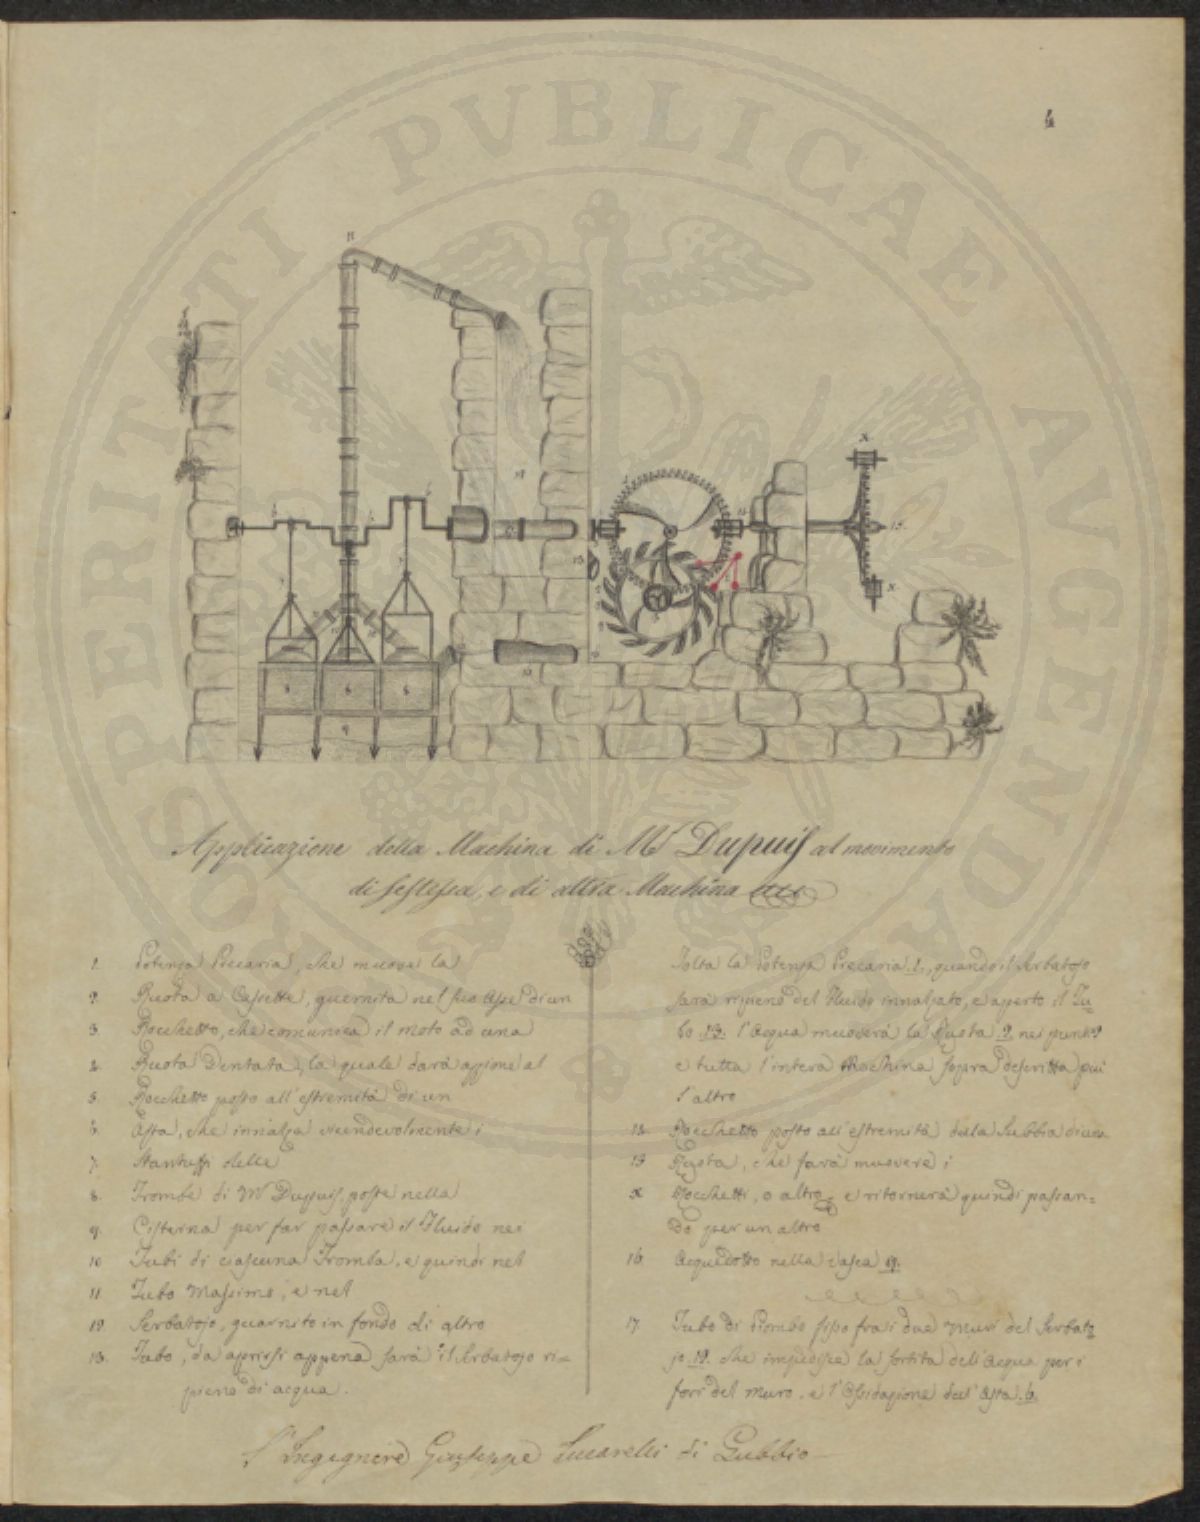 4
PROSPERITATI PVBLICAE AVGENDAE
Applicazione della Machina di Mr Dupuis al movimento
di sestessa, e di altra Machina
1. Potenza Precaria, che muove la
2. Ruota a Cassette, guernita nel suo Asse di un
3. Rocchetto, che comunica il moto ad una
4. Ruota Dentata, la quale darà azzione al
5. Rocchetto posto all'estremità di un
6. Asta, che innalza vicendevolmente i
7. Stantuffi delle
8. Trombe di Mr Dupuis, poste nella
9. Cisterna per far passare il Fluido nei
10 Tubi di ciascuna Tromba, e quindi nel
11 Tubo Massimo, e nel
12. Serbatojo, guarnito in fondo di altro
13. Tubo, da aprirsi appena sarà il Serbatojo ri=
pieno di acqua.
Tolta la Potenza Precaria 1., quando il Serbatojo
sarà ripieno del Fluido innalzato, e aperto il Tu=
bo 13. l'Acqua muoverà la Ruota 2. nei punti
e tutta l'intera Machina sopra descritta
l'altro
Rocchetto posto all'estremità della Subbia di una
15 Ruota, che farà muovere i
x Rocchetti, o altro, e ritornerà quindi passan=
do per un altro
16. Acquedotto nella Vasca 9.
17. Tubo di Piombo fisso fra i due Muri del Serbato=
jo 12. che impedisce la sortita dell'Acqua per i
fori del muro, e l'Ossidazione dell'Asta 6.
L'Ingegnere Giuseppe Lucarelli di Gubbio